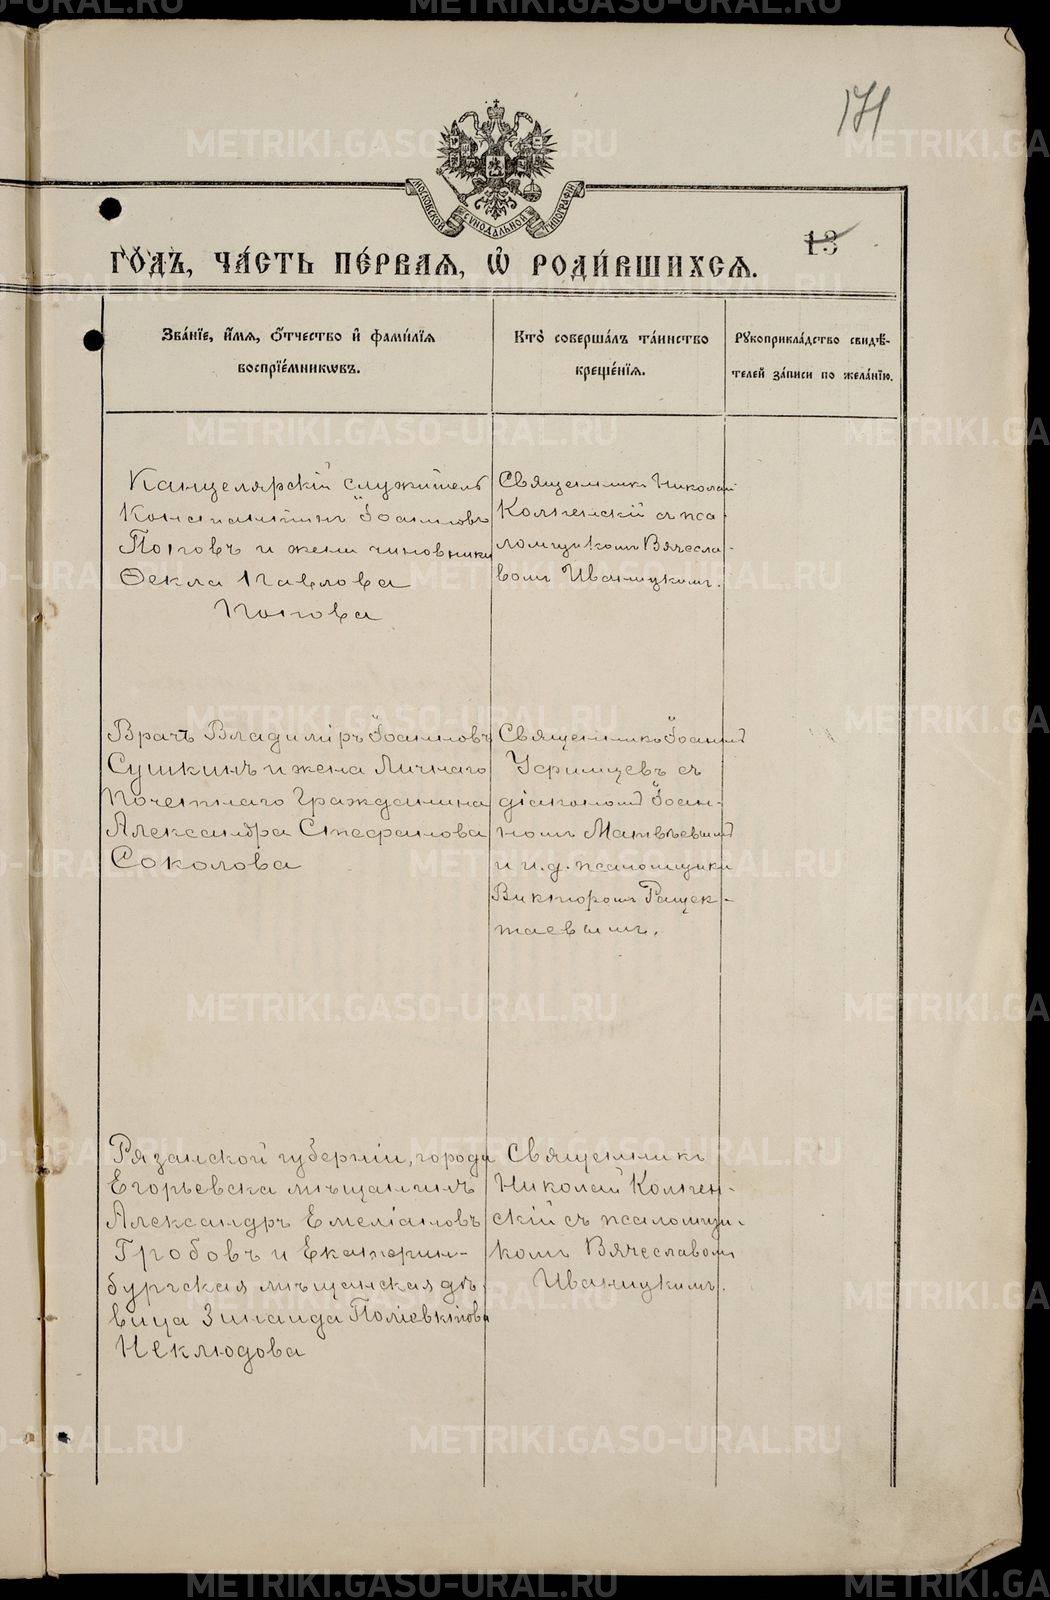 171
13
МОСКОВСКОЙ СѴНОДАЛЬНОЙ ТИПОГРАФІИ
ГО́ДЪ, ЧА́СТЬ ПЕ́РВАѦ, Ѡ҆ РОДИ́ВШИХСѦ.
Зва́нїе, и҆́мѧ, ѻ҆́тчество и҆ фами́лїѧ
воспрїе́мникѡвъ.
Кто̀ соверша́лъ та́инство
креще́нїѧ.
Рꙋкоприкла́дство свидѣ́-
телей за́писи по жела́нїю.
Канцелярскій служитель
Константинъ Іоанновъ
Поповъ и жена чиновника
Ѳекла Павлова
Попова
Священникъ Николай
съ пса-
ломщикомъ Вячесла-
вомъ Иваницкимъ.
Врачъ Владиміръ Іоанновъ
Сушкинъ и жена Личнаго
Почетнаго Гражданина
Александра Стефанова
Соколова
Священникъ Іоаннъ
Уфимцевъ съ
діакономъ Іоан-
номъ Матвѣевымъ
и и. д. псаломщика
Викторомъ
Рязанской губерніи, города
Егорьевска мѣщанинъ
Александръ Емеліановъ
Гробовъ и Екатерин-
бургская мѣщанская дѣ-
вица Зинаида Поліевктова
Неклюдова
Священникъ
Николай
скій съ псаломщи-
комъ Вячеславомъ
Иваницкимъ.
METRIKI.GASO-URAL.RU